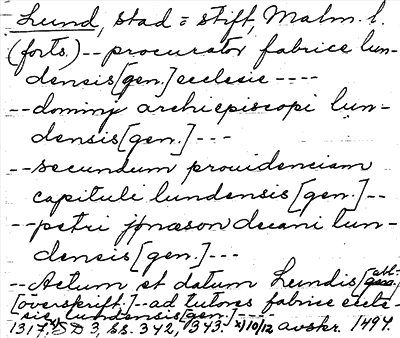 Lund, stad = stift, Malm. l.
(forts.) -- procurator fabrice lun-
densis [gen.] ecclesie ----
-- dominj archiepiscopi lun-
densis [gen.] ---
-- secundum prouidenciam
capituli lundensis [gen.] --
-- petri jonæson decani lun-
densis [gen.] ---
-- Actum et datum Lundis [abl.]
[överskrift.] -- ad tutores fabrice eccle-
sie, lundensis [gen.] ----
1317 SD 3, ss. 342, 343. x) 10/12 avskr. 1494.